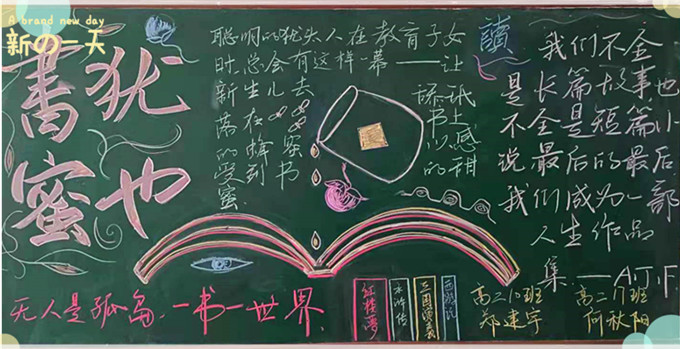 A brand new day
新の一天
書犹
蜜也
聪明的犹太人在教育子女
时,总会有这样一幕——让
新生儿去 舔舐
落在 书上
的蜂蜜 以感
受到书 的甜
蜜.
讀
我们不全
是长篇故事也
不全是短篇小
说最后的最后
我们成为一部
人生作品
集.——A.J.F.
无人是孤岛,一书一世界.
红楼梦
水浒传
三国演义
西游记
高二10班
郑建宇
高二17班
何秋阳